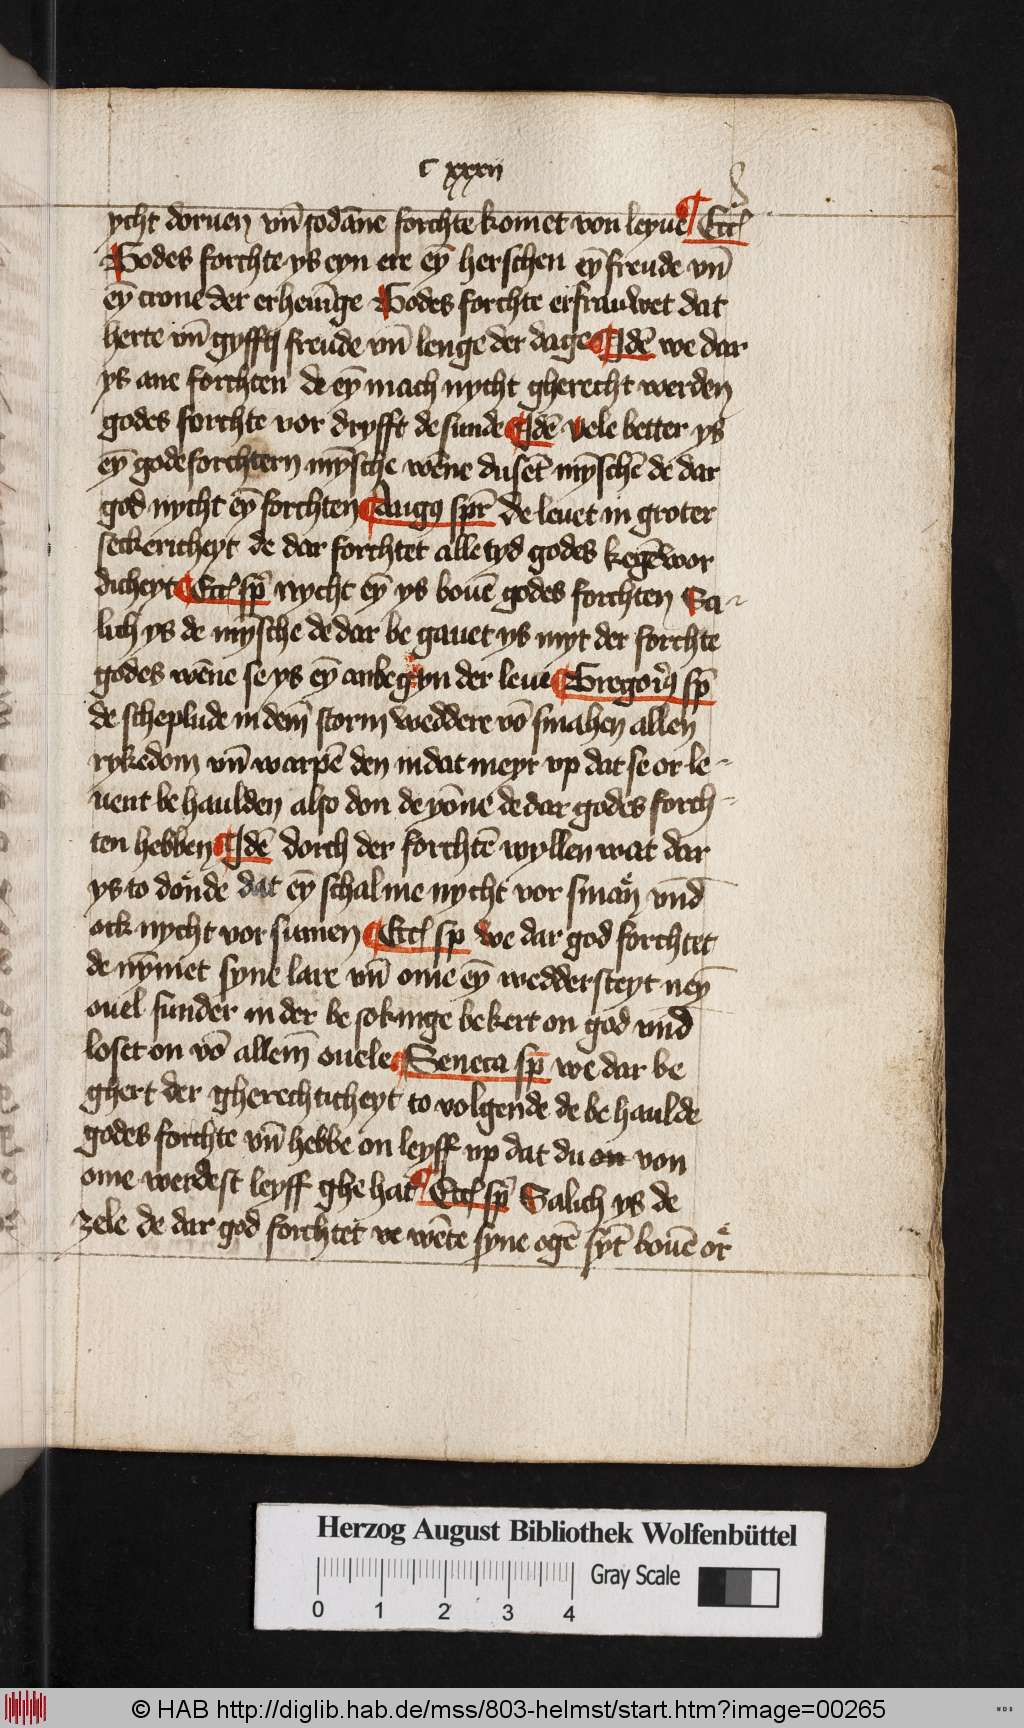 c xxxii
ycht doruen vn̄ sodāne forchte komet von leyue ¶ Eccᷝ
Godes forchte ys eyn ere eȳ herschen eȳ freude vn̄
eȳ crone der erheuīge Godes forchte erfrauwet dat
herte vn̄ gyfft freude vn̄ lenge der dage ¶ Idē we dar
ys ane forchten de eȳ mach nycht gherecht werden
godes forchte vor dryfft de sunde ¶ Idē vele better ys
eȳ gode forchtern mȳsche wēne dusēt mȳschē de dar
god nycht eȳ forchten ¶ Augꝰ spr̄ de leuet in groter
seckericheyt de dar forchtet alle tyd godes kegēwor
dicheyt ¶ Eccᷝ sp̄ nycht eȳ ys bouē godes forchten Sa-
lich ys de mȳsche de dar be gauet ys myt der forchte
godes wēne se ys eȳ anbegyn der leue ¶ Gregoriꝰ sp̄
de scheplude in dem̄ storm weddere vō smahen allen
rykedom vn̄ warpē den in dat meyr vp dat se or le-
uent be haulden also don de yōne de dar godes forch-
ten hebben ¶ Idē dorch der forchtē wyllen wat dar
ys to donde dat eȳ schal me nycht vor sman vn̄d
ock nycht vor sumen ¶ Eccᷝ sp we dar god forchtet
de nȳmet syne lare vn̄ ome eȳ weddersteyt neȳ
ouel sunder in der be sokinge bekert on god vnd
loset on vō allem̄ ouele ¶ Seneca sp̄ we dar be
ghert der gherechticheyt to volgende de be haulde
godes forchte vn̄ hebbe on leyff vp dat du on von
ome werdest leyff ghe hat ¶ Eccᷝ sp̄ Salich ys de
zele de dar god forchtet ve wēte syne ogē sȳt bouē or
Herzog August Bibliothek Wolfenbüttel
Gray Scale
0 1 2 3 4
© HAB http://diglib.hab.de/mss/803-helmst/start.htm?image=00265